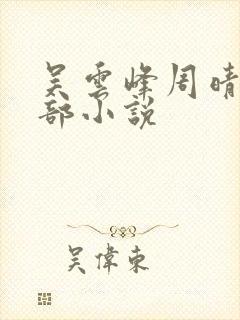 吴雲峰周晴
部小説
吴偉東